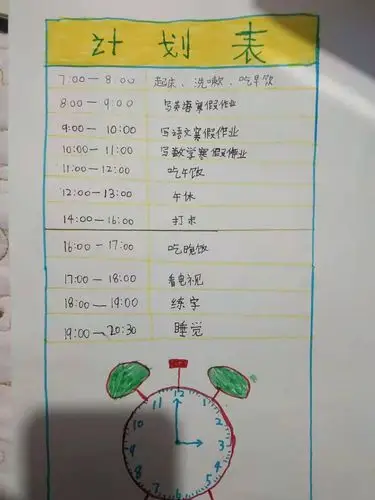 计划表
7:00—8:00 起床、洗嗽、吃早饭
8:00—9:00 写英语寒假作业
9:00—10:00 写语文寒假作业
10:00—11:00 写数学寒假作业
11:00—12:00 吃午饭
12:00—13:00 午休
14:00—16:00
16:00—17:00 吃晚饭
17:00—18:00 看电视
18:00—19:00 练字
19:00—20:30 睡觉
12
11 1
10 2
9 3
8 4
7 5
6